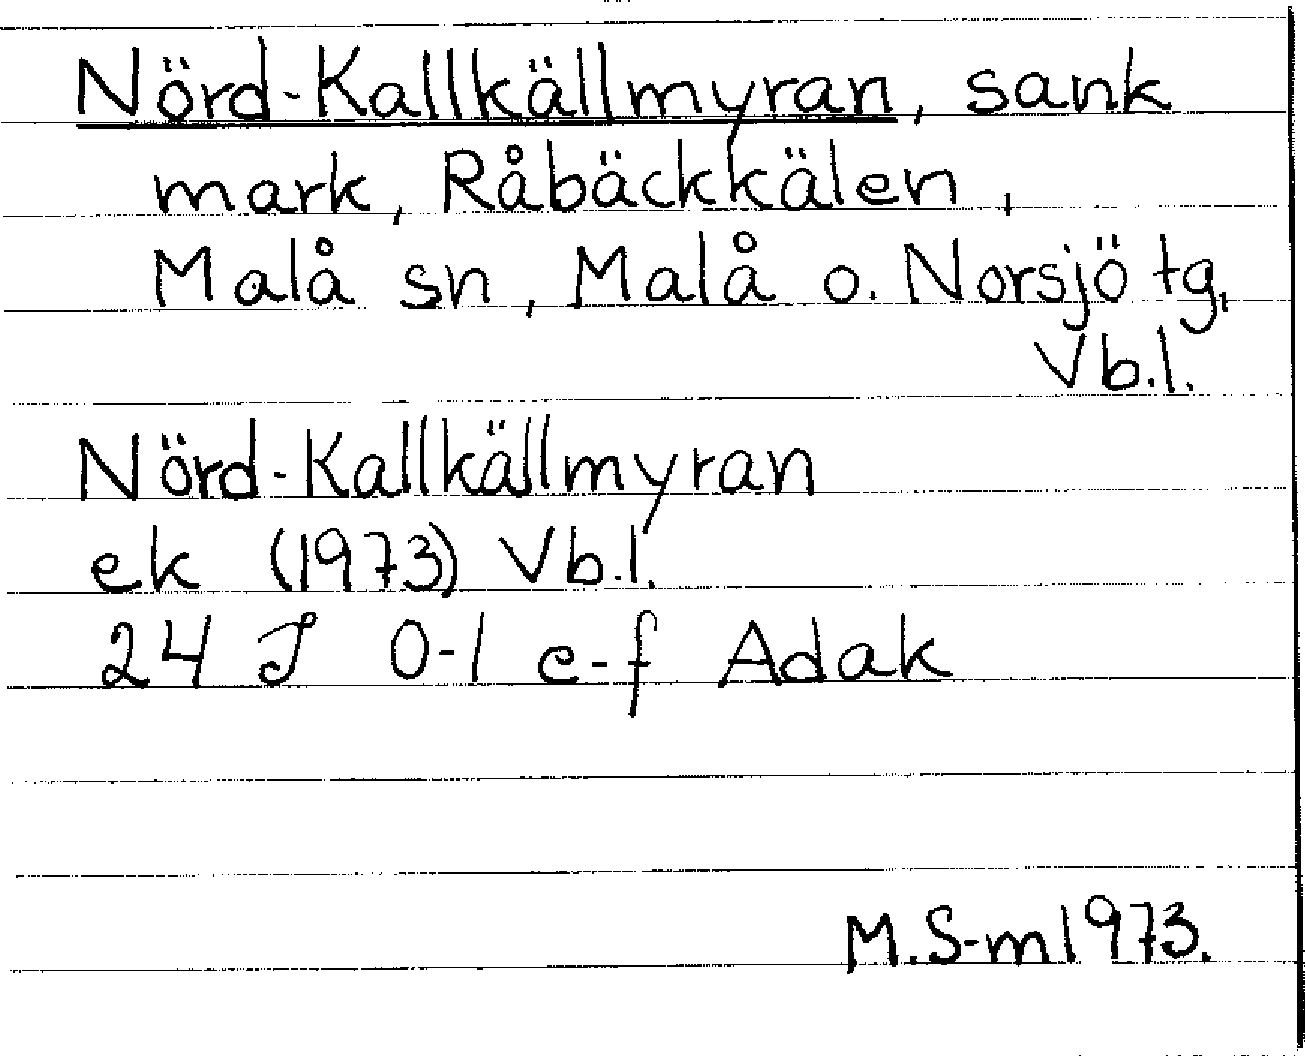 Nörd-Kallkällmyran, sank
mark, Råbäckkälen,
Malå sn, Malå o. Norsjö tg,
Vb.l.
Nörd-Kallkällmyran
ek (1973) Vb.l.
24 J 0-1 e-f Adak
M.S-m 1973.